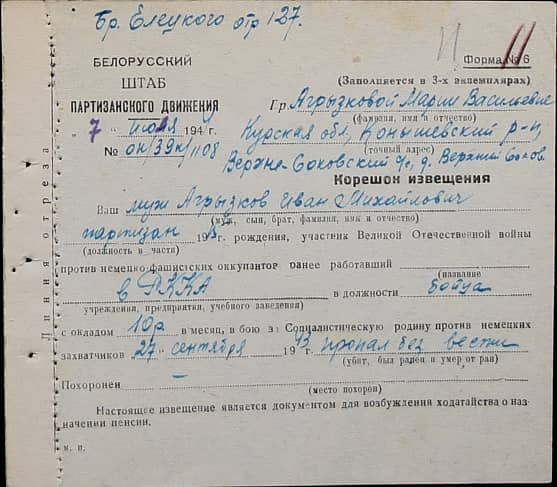 Бр. Елецкого отр 127.
11
БЕЛОРУССКИЙ
ШТАБ
ПАРТИЗАНСКОГО ДВИЖЕНИЯ
„7“ июля 194 г.
№ он/39к/1108
Форма № 6
(Заполняется в 3-х экземплярах)
Гр. Агрызковой Марии Васильевне
(фамилия, имя и отчество)
Курская обл, Конышевский р-н,
(точный адрес)
Верхне-Соковский с/с, д. Верхний Соков.
Корешок извещения
Ваш муж Агрызков Иван Михайлович
(муж, сын, брат, фамилия, имя и отчество)
партизан 19 г. рождения, участник Великой Отечественной войны
(должность в части)
против немецко-фашистских оккупантов ранее работавший
(название
в РККА в должности бойца
учреждения, предприятия, учебного заведения)
с окладом 10р в месяц, в бою за Социалистическую родину против немецких
захватчиков 27 сентября 1943 г. пропал без вести
(убит, был ранен и умер от ран)
Похоронен –
(место похорон)
Настоящее извещение является документом для возбуждения ходатайства о на-
значении пенсии.
м. п.
Линия отреза